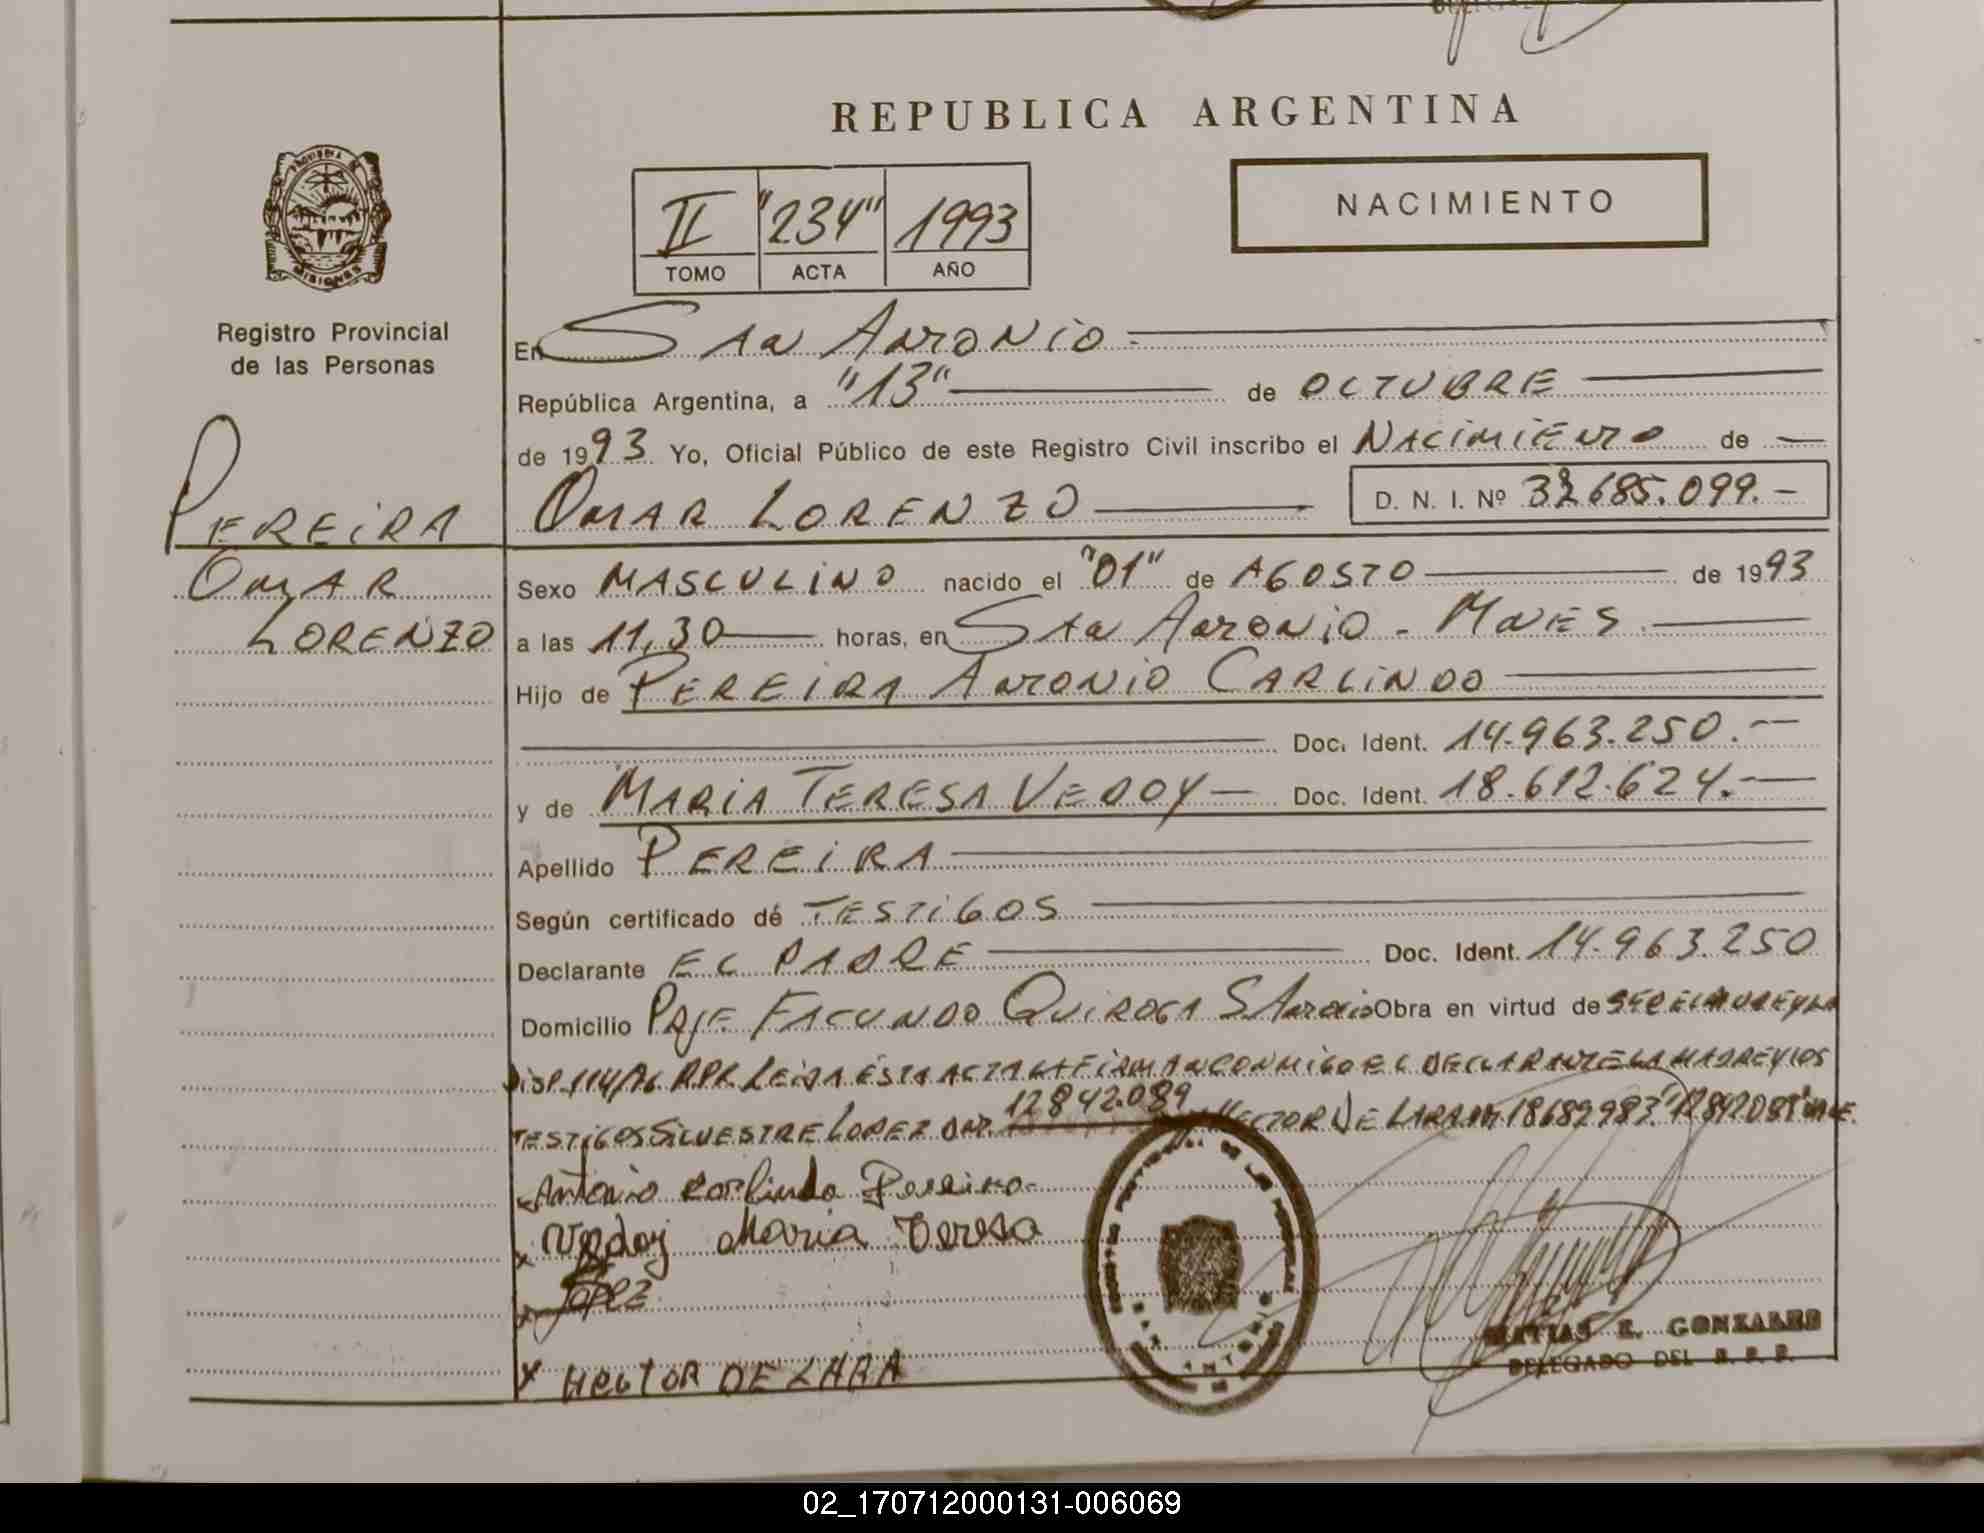 REPUBLICA ARGENTINA
NACIMIENTO
II "234" 1993
TOMO ACTA AÑO
PROVINCIA DE MISIONES
Registro Provincial
de las Personas
En San Antonio
República Argentina, a "13" de OCTUBRE
de 1993 Yo, Oficial Público de este Registro Civil inscribo el NACIMIENTO de
PEREIRA OMAR LORENZO D. N. I. Nº 685.099.-
OMAR Sexo MASCULINO nacido el "01" de AGOSTO de 1993
LORENZO a las 11,30 horas, en San Antonio - Mnes
Hijo de PEREIRA ANTONIO CARLINDO
Doc. Ident. 14.963.250.-
y de MARIA TERESA VEDOY Doc. Ident. 18.612.624.-
Apellido PEREIRA
Según certificado de TESTIGOS
Declarante EL PADRE Doc. Ident. 14.963.250
Domicilio PAJE FACUNDO QUIROGA S Antonio Obra en virtud de
DISP. 114/76 RPP. LEIDA ESTA ACTA LA FIRMAN CONMIGO EL DECLARANTE LA MADRE Y LOS
TESTIGOS SILVESTRE LOPEZ DNI. 12842.089 HECTOR DE LARA DNI 18689983. "12842089" VALE.
Antonio Carlindo Pereira
x Vedoy Maria Teresa
x Lopez
x HECTOR DE LARA
SAN ANTONIO
MATIAS E. GONZALEZ
DELEGADO DEL R. P. P.
02_170712000131-006069